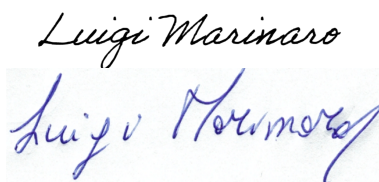 Luigi Marinaro
Luigi Marinaro